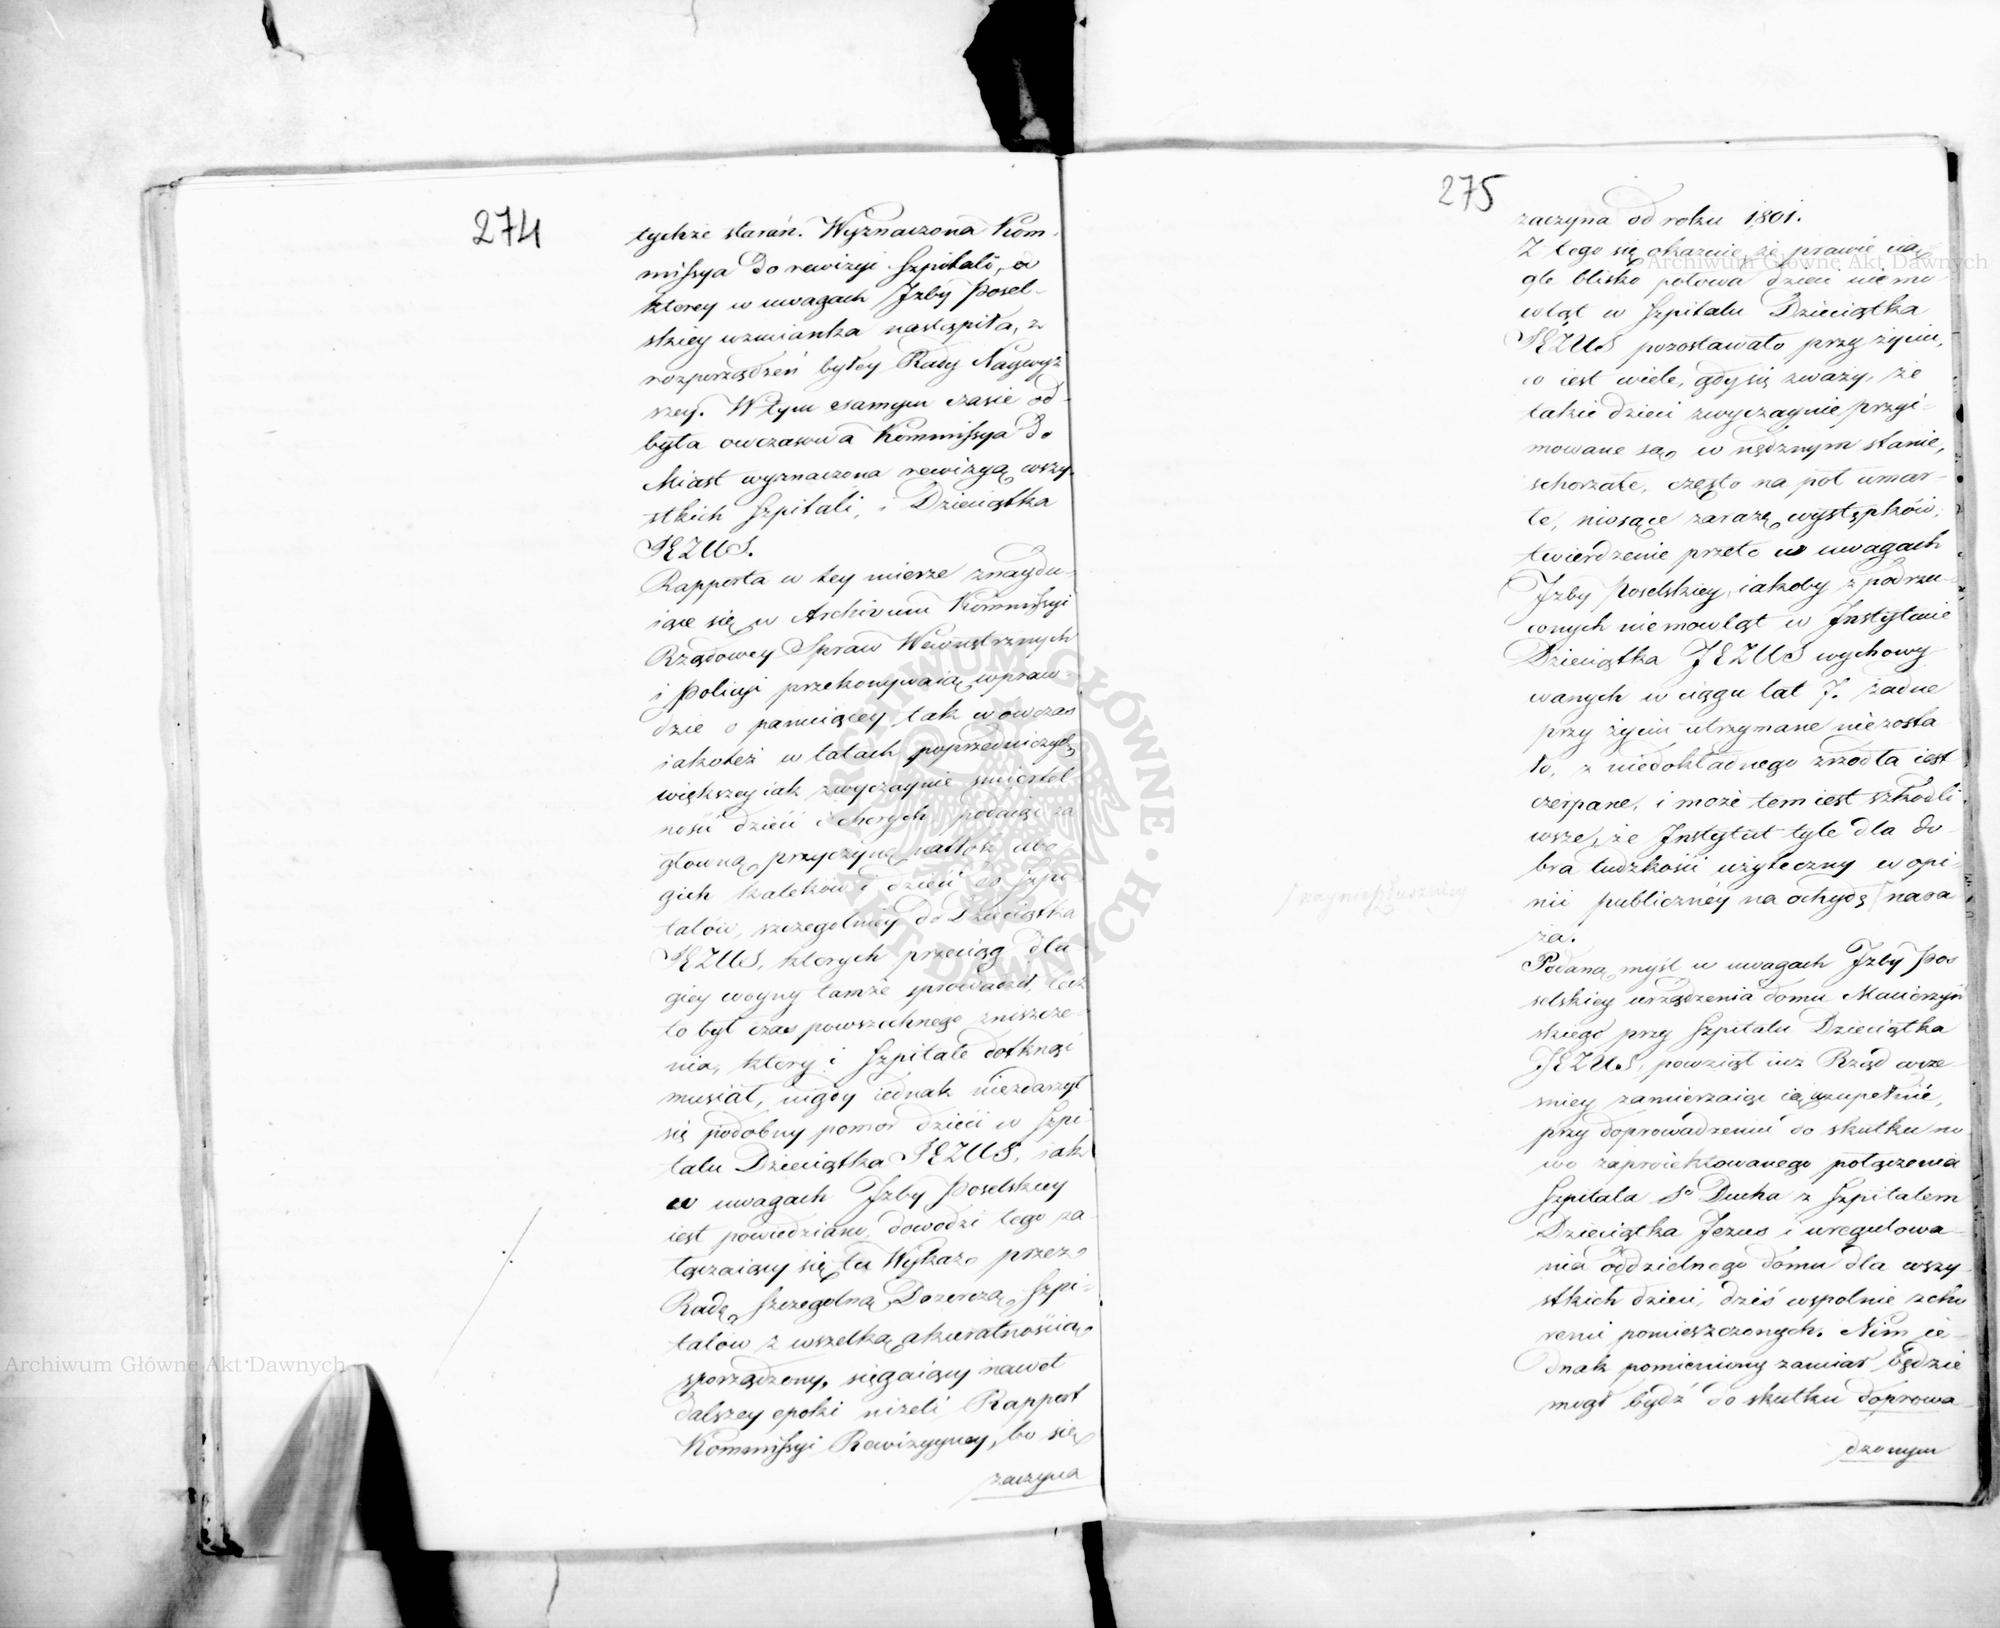 274
tychże starań. Wyznaczona Kom-
missya do rewizyi Szpitali, o
ktorey w uwagach Jzby Posel-
skiey wzmianka nastąpiła, z
rozporządzeń byłey Rady Naywyż
szey. W tym samym czasie od-
była owczasowa Kommissya do
Miast wyznaczona rewizyą wszy-
stkich Szpitali, i Dzieciątka
JEZUS.
Rapporta w tey mierze znaydu-
iące się w Archiwum Kommissyi
Rządowey Spraw Wewnętrznych
i Policyi przekonywaią wpraw-
dzie o panuiącey tak wowczas
iakoteż w latach poprzedniczych
większey iak zwyczaynie smiertel
ności dzieci i chorych podaiąc za
głowną przyczynę natłok ubo
gich kalekow i dzieci do Szpi
talów, szczegolniey do Dzieciątka
JEZUS, ktorych przeciąg dłu
giey woyny tamże sprowadził, lecz
to był czas powszechnego zniszcze-
nia, ktory i Szpitale dotknąć
musiał, nigdy iednak niezdarzył
się podobny pomor dzieci w Szpi
talu Dzieciątka JEZUS, iak
w uwagach Jzby Poselskiey
iest powiedziane, dowodzi tego za-
łączaiący się tu Wykaz przez
Radę Szczegolną Dozorczą Szpi-
talow z wszelką akuratnością
sporządzony, sięgaiący nawet
dalszey epoki niżeli Rapport
Kommissyi Rewizyyney, bo się
zaczyna
275
zaczyna od roku 1801.
Z tego się okazuie, że prawie cią
gle blisko połowa dzieci niemo
wląt w Szpitalu Dzieciątka
JEZUS pozostawało przy życiu,
co iest wiele, gdy się zważy, że
takie dzieci zwyczaynie przyi-
mowane są w nędznym stanie,
schorzałe, często na poł umar-
łe, niosące zarazę występków,
twierdzenie przeto w uwagach
Jzby Poselskiey, iakoby z podrzu-
conych niemowląt w Instytucie
Dzieciątka JEZUS wychowy
wanych w ciągu lat 7. żadne
przy życiu utrzymane niezosta
ło, z niedokładnego zrzodła iest
czerpane, i może tem iest szkodli
wsze, że Instytut tyle dla do-
bra ludzkości użyteczny w opi-
nii publiczney na ochydę / nara
/ nayniesłuszniey
ża.
Podaną myśl w uwagach Jzby Po
selskiey urządzenia domu Macierzyń
skiego przy Szpitalu Dzieciątka
JEZUS, powziął iuż Rząd wcze
sniey zamierzaiąc ią uzupełnić,
przy doprowadzeniu do skutku no
wo zaproiektowanego połączenia
Szpitala So Ducha z Szpitalem
Dzieciątka Jezus i uregulowa-
nia oddzielnego domu dla wszy
stkich dzieci, dziś wspolnie z cho
remi pomieszczonych. Nim ie-
dnak pomieniony zamiar będzie
mogł bydź do skutku doprowa-
dzonym
ARCHIWUM GŁÓWNE
AKT DAWNYCH
Archiwum Główne Akt Dawnych
Archiwum Główne Akt Dawnych